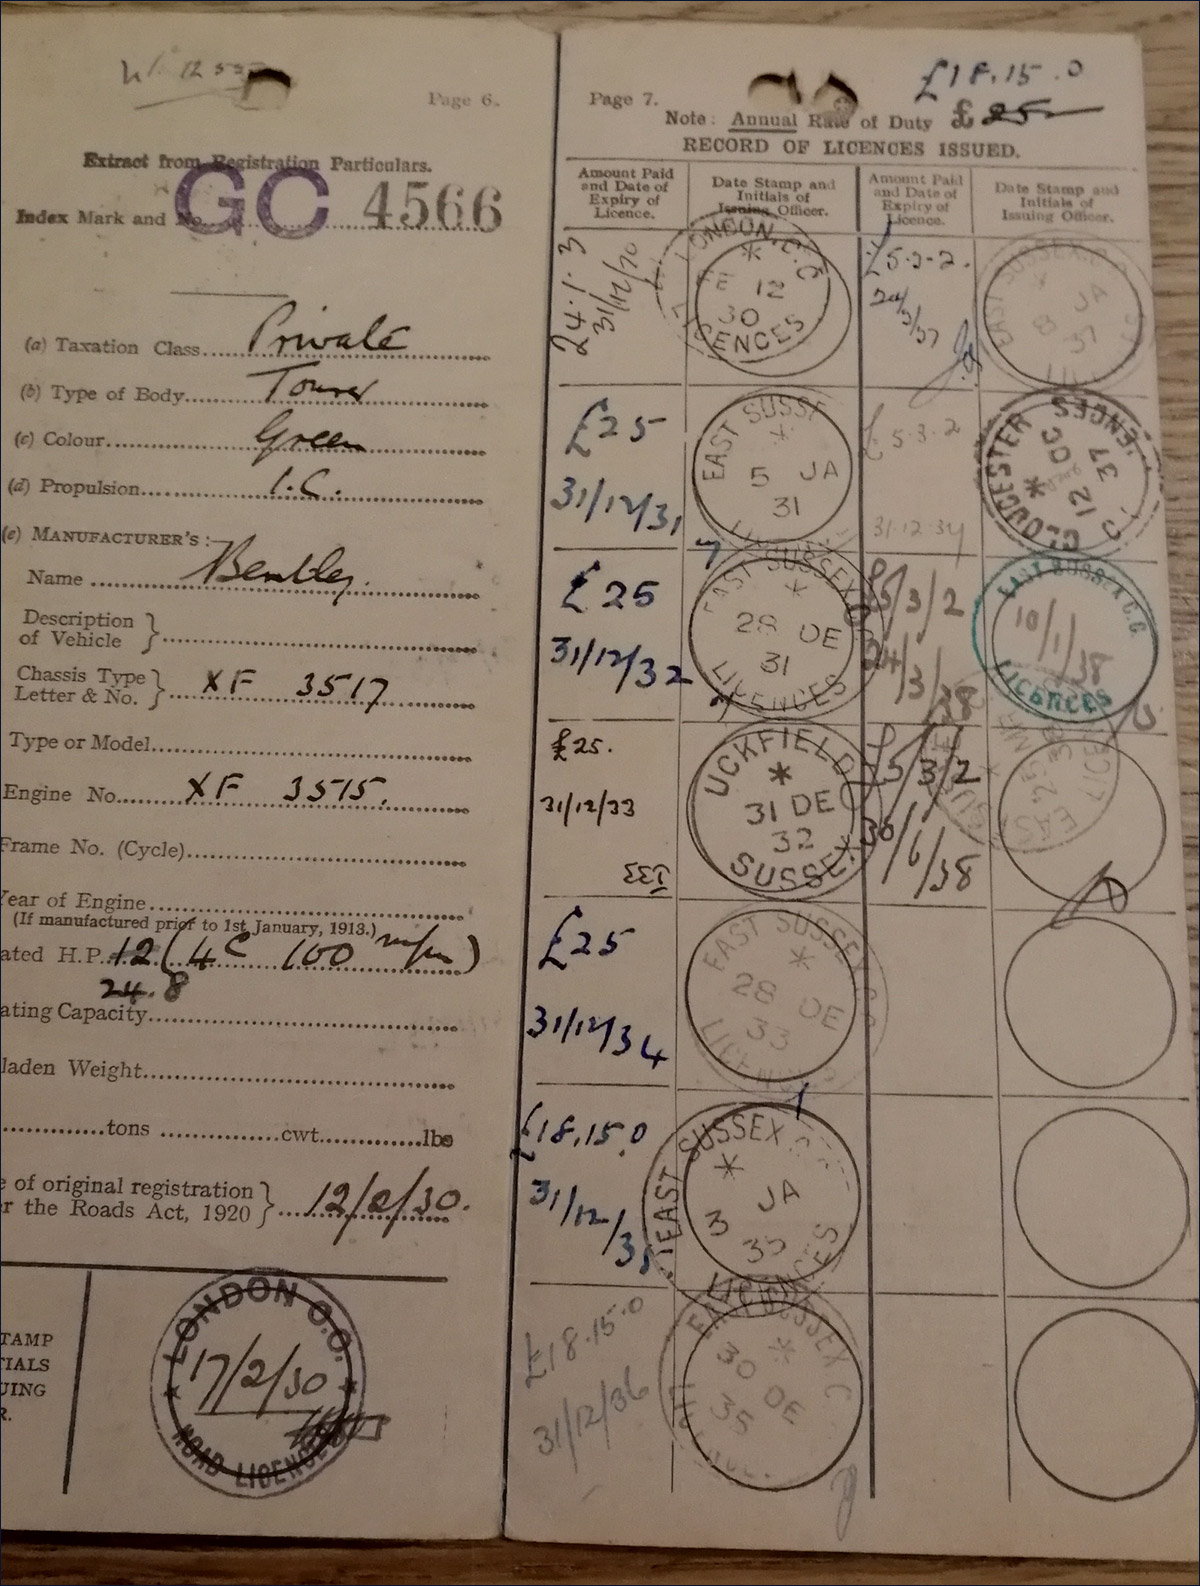 Page 6.
Extract from Registration Particulars.
Index Mark and No. GC 4566
(a) Taxation Class Private
(b) Type of Body Tourer
(c) Colour Green
(d) Propulsion I.C.
(e) MANUFACTURER'S :—
Name Bentley.
Description
of Vehicle
Chassis Type
Letter & No. XF 3517
Type or Model
Engine No. XF 3515.
Frame No. (Cycle)
Year of Engine
(If manufactured prior to 1st January, 1913.)
ated H.P. 12 (4C 100 m/m)
24.8
ating Capacity
laden Weight
tons cwt. lbs
e of original registration
r the Roads Act, 1920 12/2/30.
TAMP
TIALS
UING
R.
LONDON C.C.
17/2/30
ROAD LICENCES
£18.15.0
Page 7.
Note: Annual Rate of Duty £25
RECORD OF LICENCES ISSUED.
Amount Paid and Date of Expiry of Licence.
Date Stamp and Initials of Issuing Officer.
Amount Paid and Date of Expiry of Licence.
Date Stamp and Initials of Issuing Officer.
24.1.3
31/12/30
LONDON.C.C
FE 12
30
LICENCES
£5-3-2.
24/3/37
EAST SUSSEX
8 JA
37
£25
31/12/31
EAST SUSSE
5 JA
31
£5.3.2
31.12.37
GLOUCESTER
DC 12
37
£25
31/12/32
EAST SUSSEX C
28 DE
31
LICENCES
£5/3/2
24/3/38
EAST SUSSEX C.C
10/1/38
LICENCES
£25.
31/12/33
UCKFIELD
31 DE
32
SUSSEX
£5/3/2
30/6/38
£25
31/12/34
EAST SUSSEX C.C
28 DE
33
LICENCES
£18.15.0
31/12/35
EAST SUSSEX
3 JA
35
LICENCES
£18.15.0
31/12/36
EAST SUSSEX C
30 DE
35